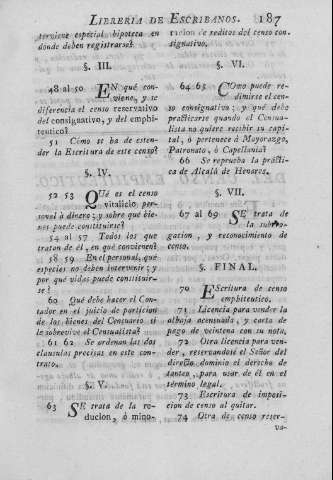 LIBRERIA DE ESCRIBANOS. 187
terviene especial hipoteca en
donde deben registrarse?
§. III.
48 al 50 EN qué con-
viene, y se
diferencia el censo reservativo
del consignativo, y del emphi-
teutico?
51 Cómo se ha de esten-
der la Escritura de este censo?
§. IV.
52 53 QUé es el censo
vitalicio per-
sonal á dinero; y sobre qué bie-
nes puede constituirse?
54 al 57 Todos los que
tratan de él, en qué convienen?
58 59 En el personal, qué
especies no deben intervenir; y
por qué vidas puede constituir-
se?
60 Qué debe hacer el Con-
tador en el juicio de particion
de los bienes del Censuario si
le sobrevive el Censualista?
61 62 Se ordenan las dos
clausulas precisas en este con-
trato.
§. V.
63 SE trata de la re-
duccion, ó mino-
racion de reditos del censo con-
signativo.
§. VI.
64 65 COmo puede re-
dimirse el cen-
so consignativo; y qué debe
practicarse quando el Censua-
lista no quiere recibir su capi-
tal, ó pertenece á Mayorazgo,
Patronato, ó Capellanía?
66 Se reprueba la prácti-
ca de Alcalá de Henares.
§. VII.
67 al 69 SE trata de
la subro-
gacion, y reconocimiento de
censo.
§. FINAL.
70 EScritura de censo
emphiteutico.
71 Licencia para vender la
alhaja acensuada, y carta de
pago de veintena con su nota.
72 Otra licencia para ven-
der, reservandose el Señor del
directo dominio el derecho de
tanteo, para usar de él en el
término legal.
73 Escritura de imposi-
cion de censo al quitar.
74 Otra de censo reser-
va-